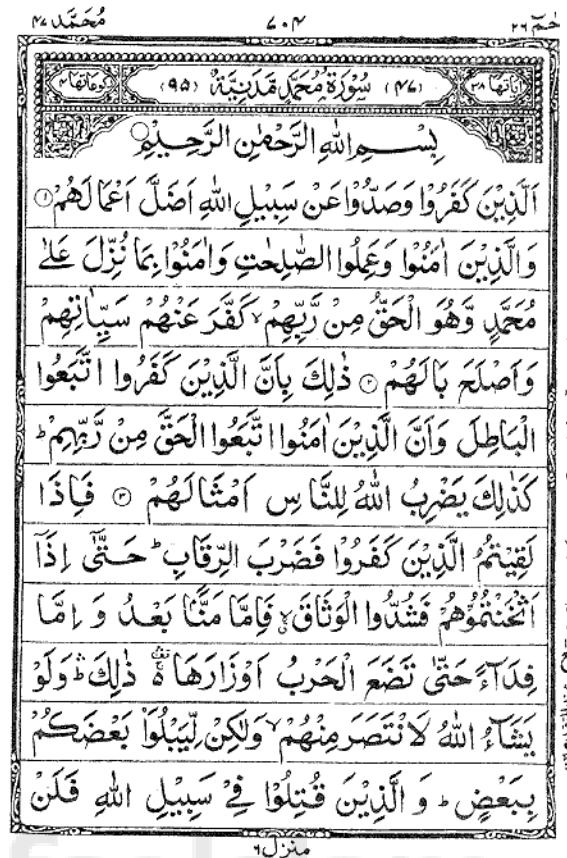 حٰمٓ ٢٦ ٧٠٤ مُحَمَّد ٤٧
اٰیَاتُهَا ٣٨ (٤٧) سُوْرَةُ مُحَمَّدٍ مَّدَنِیَّةٌ (٩٥) رُكُوْعَاتُهَا ٤
بِسْمِ اللّٰهِ الرَّحْمٰنِ الرَّحِیْمِ
اَلَّذِیْنَ كَفَرُوْا وَصَدُّوْا عَنْ سَبِیْلِ اللّٰهِ اَضَلَّ اَعْمَالَهُمْ ۝١
وَالَّذِیْنَ اٰمَنُوْا وَعَمِلُوا الصّٰلِحٰتِ وَاٰمَنُوْا بِمَا نُزِّلَ عَلٰى
مُحَمَّدٍ وَّهُوَ الْحَقُّ مِنْ رَّبِّهِمْ ۙ كَفَّرَ عَنْهُمْ سَیِّاٰتِهِمْ
وَاَصْلَحَ بَالَهُمْ ۝٢ ذٰلِكَ بِاَنَّ الَّذِیْنَ كَفَرُوا اتَّبَعُوا
الْبَاطِلَ وَاَنَّ الَّذِیْنَ اٰمَنُوا اتَّبَعُوا الْحَقَّ مِنْ رَّبِّهِمْ ؕ
كَذٰلِكَ یَضْرِبُ اللّٰهُ لِلنَّاسِ اَمْثَالَهُمْ ۝٣ فَاِذَا
لَقِیْتُمُ الَّذِیْنَ كَفَرُوْا فَضَرْبَ الرِّقَابِ ؕ حَتّٰۤى اِذَاۤ
اَثْخَنْتُمُوْهُمْ فَشُدُّوا الْوَثَاقَ ۙ فَاِمَّا مَنًّۢا بَعْدُ وَ اِمَّا
فِدَآءً حَتّٰى تَضَعَ الْحَرْبُ اَوْزَارَهَا ۛ۫ۚ ذٰلِكَ ۛؕ وَلَوْ
یَشَآءُ اللّٰهُ لَانْتَصَرَ مِنْهُمْ ۙ وَلٰكِنْ لِّیَبْلُوَا۟ بَعْضَكُمْ
بِبَعْضٍ ؕ وَ الَّذِیْنَ قُتِلُوْا فِیْ سَبِیْلِ اللّٰهِ فَلَنْ
منزل ٦